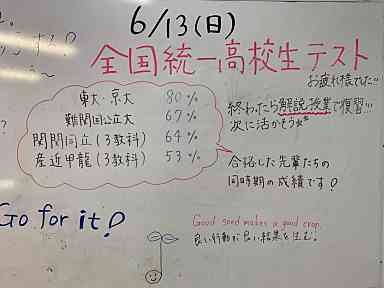 6/13(日)
全国統一高校生テスト
お疲れ様でした
東大・京大 80%
難関国公立大 67%
関関同立(3教科) 64%
産近甲龍(3教科) 53%
終わったら解説授業で復習!!!
次に活かそう
合格した先輩たちの
同時期の成績です!
Go for it!
Good seed makes a good crop
良い行動が良い結果を生む。